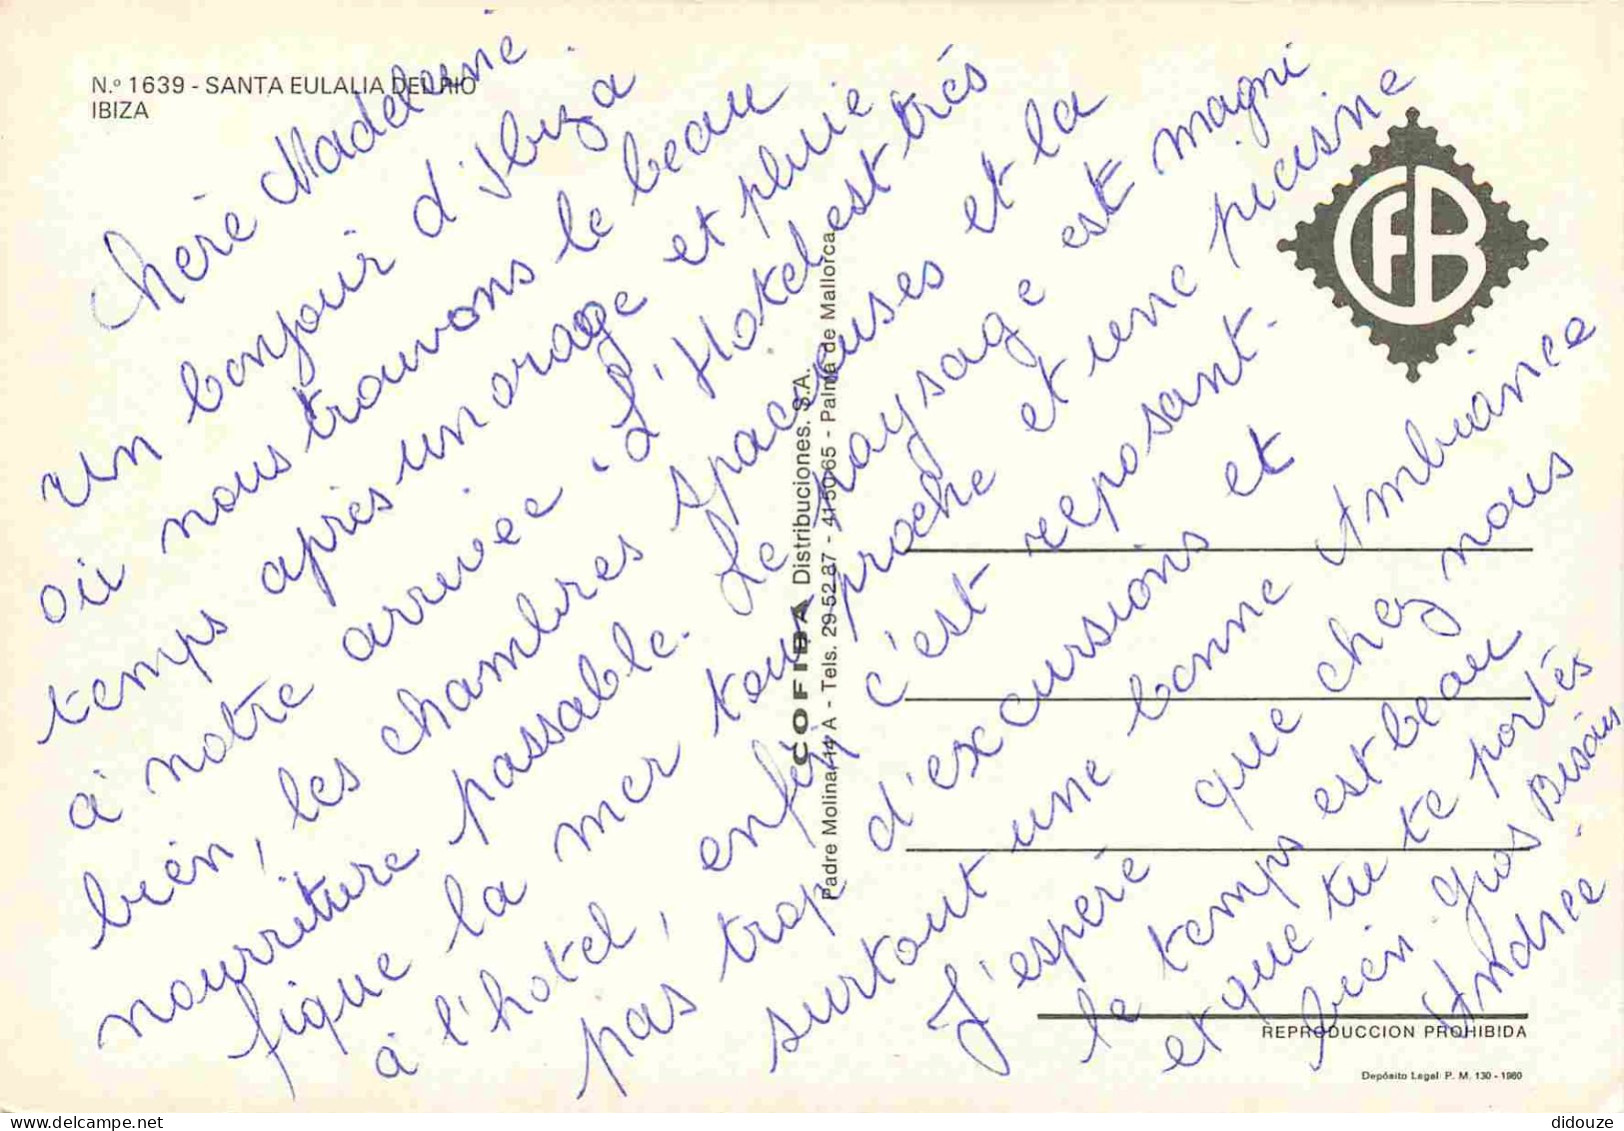 N.º 1639 - SANTA EULALIA DEL RIO
IBIZA
Chère Madeleine
Un bonjour d'Ibiza
où nous trouvons le beau
temps après un orage et pluie
à notre arrivée. L'Hotel est très
bien, les chambres spacieuses et la
nourriture passable. Le paysage est magni
fique la mer tout proche et une piscine
à l'hotel, enfin c'est reposant.
pas trop d'excursions et
surtout une bonne Ambiance
J'espère que chez nous
le temps est beau
et que tu te portes
bien. Gros Bisous
Andrée.
COFIBA Distribuciones. S.A.
Padre Molina, 14 A - Tels. 29 52 87 - 41 50 65 - Palma de Mallorca
CFB
REPRODUCCION PROHIBIDA
Depósito Legal P. M. 130 - 1980
didouze